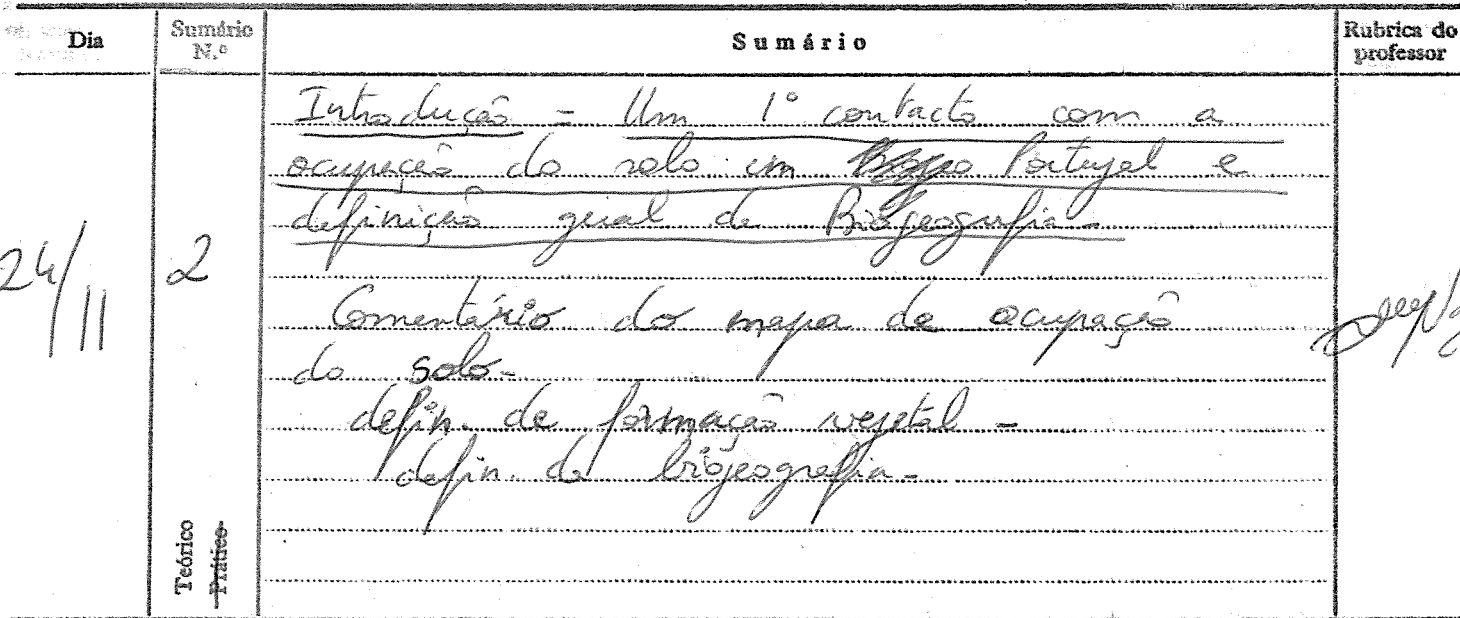 Dia
Sumário N.º
Sumário
Rubrica do professor
Introdução = Um 1º contacto com a
ocupação do solo em Portugal e
definição geral de Biogeografia -
24/11
2
Comentário do mapa de ocupação
do solo -
defin. de formação vegetal -
defin. de biogeografia -
Teórico
Prático